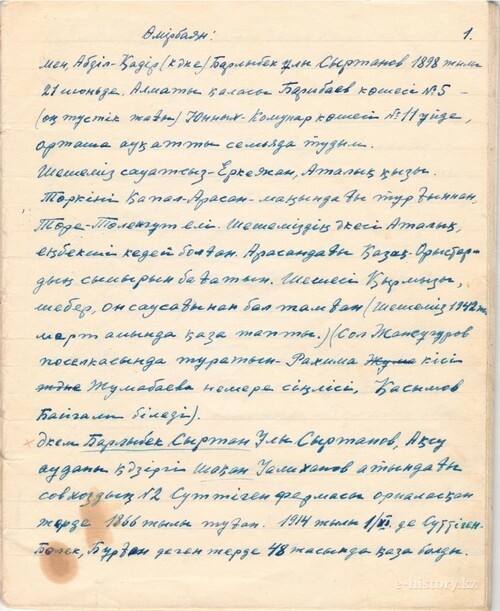 Өмірбаян:
1.
мен, Абділ-Қадір (Кәке) Барлыбек ұлы Сыртанов 1898 жылы
21 июньде. Алматы қаласы Барибаев көшесі №5 -
(оң түстік жағы) Юнных-Комунар көшесі №11 үйде,
орташа ауқатты семьяда тудым.
Шешеміз сауатсыз-Еркежан, Аталық қызы.
Төркіні Қапал-Арасан-маңындағы тұрғыннан,
Төре-Төленгут елі. Шешеміздің әкесі Аталық,
еңбекші кедей болған. Арасандағы Қазақ-Орыстар-
дың сиырын бағатын. Шешесі Қырмызы,
шебер, он саусағынан бал тамған (шешеміз 1942 ж.
март айында қаза тапты.) (Сол Жансүгуров
поселкасында тұратын-Рахима кісі
Жумабаева немере сіңлісі, Қасымов
Байғали біледі).
Әкем Барлыбек Сыртан Ұлы Сыртанов, Ақсу
ауданы қәзіргі Шоқан Уалиханов атындағы
совхоздың №2 Сүттіген фермасы орналасқан
жерде 1866 жылы туған. 1914 жылы 1/XI де Сүттіген-
Бөлек, Бұрған деген жерде 48 жасында қаза болды.
e-history.kz